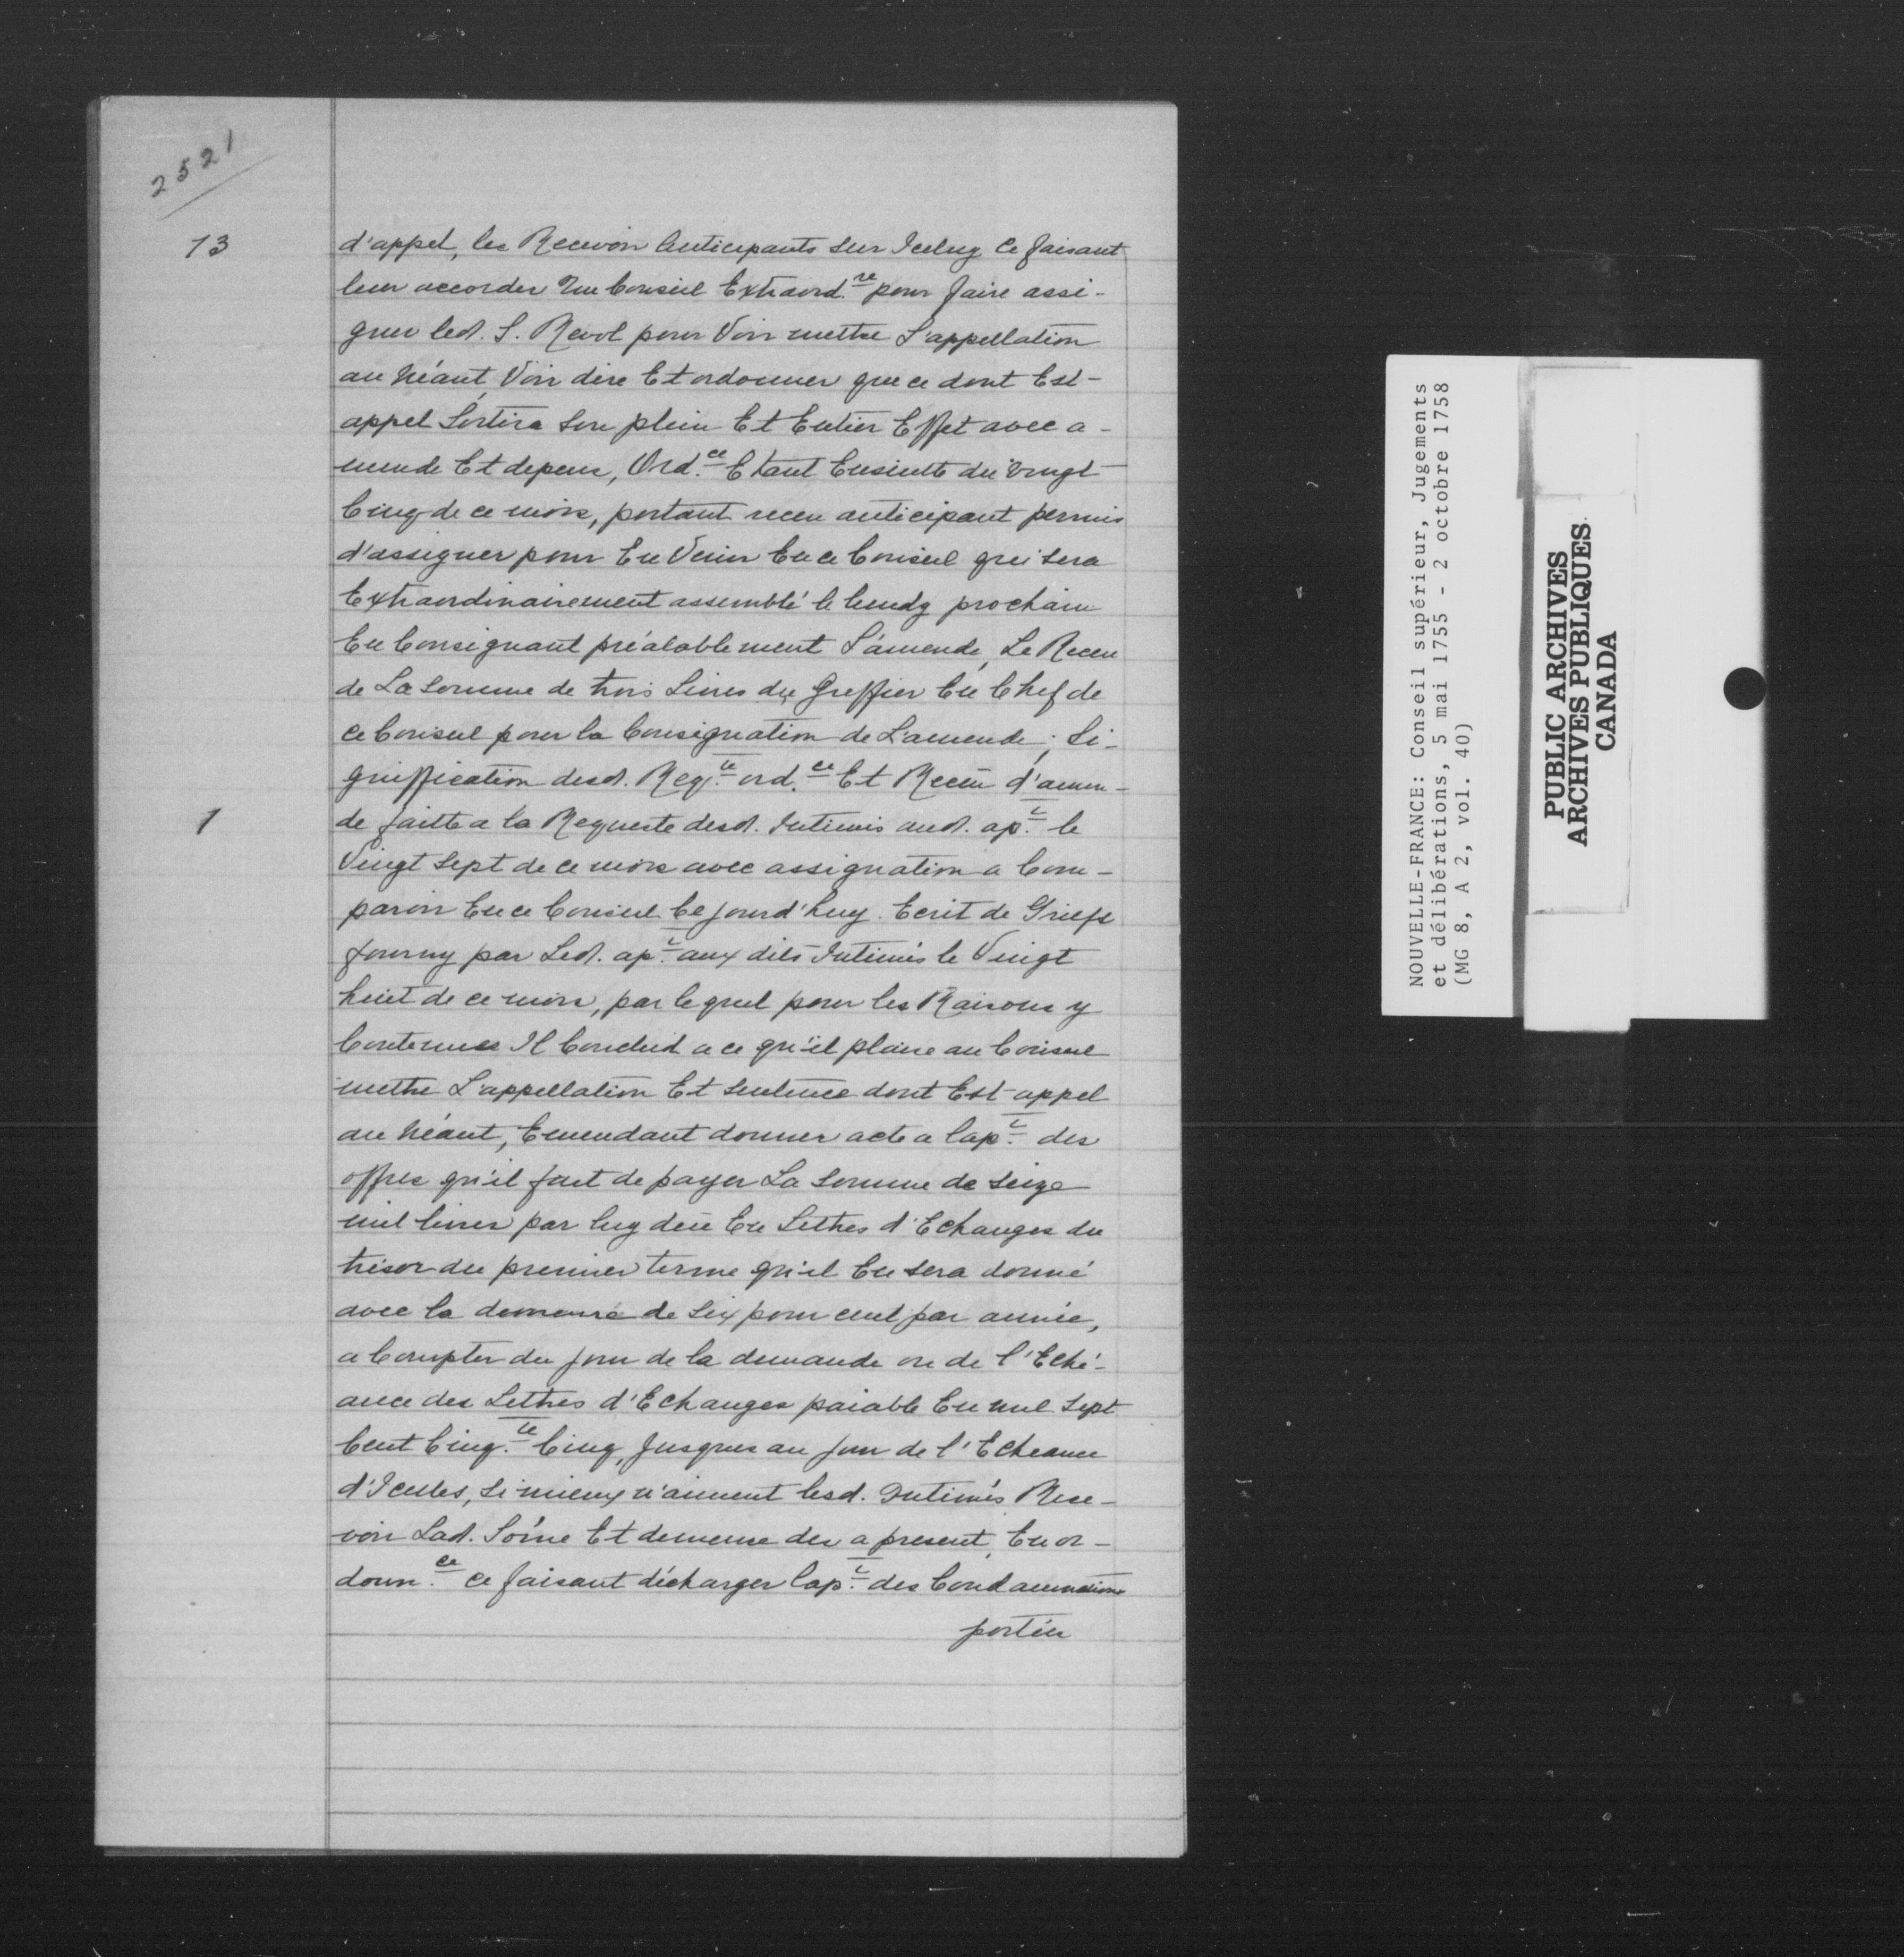 2521
13
d'appel, les Recevoir Anticipants sur Iceluy Ce faisant
leur accorder Un Conseil Extraord.re pour faire assi-
gner led. S. Revol pour Voir mettre L'appellation
au Néant, Voir dire Et ordonner que ce dont Est-
appel Sortira son plein Et Entier Effet avec a-
mende Et depens, Ord.ce Etant Ensuitte du Vingt
Cinq de ce mois, portant receu anticipant permis
d'assigner pour En Venir En ce Conseil qui sera
Extraordinairement assemblé le lundy prochain
En Consignant préalablement L'amende, Le Receu
de La Somme de trois Livres du Greffier En Chef de
ce Conseil pour la Consignation de L'amende; Si-
gniffication desd. Reqte ord.ce Et Receu d'amen-
1
de faitte a la Requeste desd. Intimis aud. ap.t le
Vingt Sept de ce mois avec assignation a Com-
paroir En ce Conseil Ce jourd'huy. Ecrit de Griefs
fourny par Led. ap.t aux dits Intimés le Vingt
huit de ce mois, par lequel pour les Raisons y
Contenues Il Conclud a ce qu'il plaise au Conseil
mettre L'appellation Et Sentence dont Est-appel
au Néant, Emendant donner acte a lap.t des
offres qu'il fait de payer La Somme de Seize
mil livres par luy deüe En Lettres d'Echanges du
trésor du premier terme qu'il En sera donné
avec la demeure de Six pour cent par année,
a Compter du jour de la demande ou de l'Eché-
ance des Lettres d'Echanges paiable En mil Sept
Cent Cinq.te Cinq, Jusques au jour de l'Echeance
d'Icelles, Si mieux n'aiment lesd. Intimés Rece-
voir Lad. Som̃e Et demeure des a present, En or-
donn.ce ce faisant décharger lap.t des Condamnations
portées
NOUVELLE-FRANCE: Conseil supérieur, Jugements
et délibérations, 5 mai 1755 - 2 octobre 1758
(MG 8, A 2, vol. 40)
PUBLIC ARCHIVES
ARCHIVES PUBLIQUES
CANADA